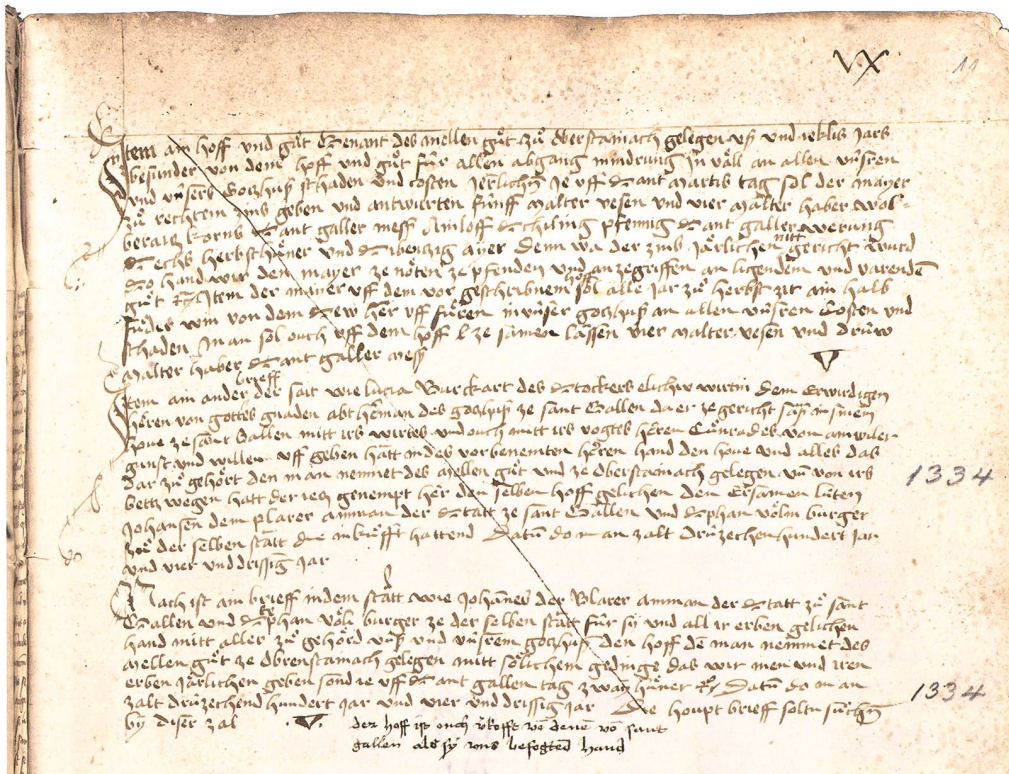 VX 11
Item ain hoff und guͦt genant des mellen guͦt zuͦ oberstainach gelegen und jerlis jars
besunder von dem hoff und guͦt fuͥr allen abgang mindrung in väll an allen unsren
und unsers Gotzhuß schaden und costen Jerlichen Je uff Sant Martis tag sol der mayer
zuͦ rechtem zins geben und antwirten fuͥnff malter vesen und vier malter haber wol
beraitz korns Sant galler mess Ainloff Schiling pfennig Sant galler werung
Sechs herbsthuͤner und Sibentzig ayer denn wa der zinß Järlichen nitt gericht wurd
So hand wir den mayer ze nöten ze pfenden und anzegriffen an ligendem und varendem
guͦt Item der mayer uff dem vor geschribnem hoff sol alle Jar zuͦ herbst zit ain halb
fuͦder win von dem See her uff fuͤren in unser gotzhuß an allen unsren Costen und
schaden Man sol ouch uff dem hoff ze samen lassen vier malter vesen und druͥw
malter haber Sant galler mess
Item ain ander brieff der sait wie lucia Burckart des Stockers elichiu wirtin dem Erwirdigen
heren von gottes gnaden abt herman des gotzhuß ze sant Gallen da er ze gericht saß in sinem
hove ze sant Gallen mitt irs wirtes und ouch mitt irs vogtes heren Cuͦnrades von amwiler
gunst und willen uff geben hatt in des vorbenemten heren hand den hove und alles das
dar zuͦ gehört den man nemnet des mellen guͦt und ze oberstainach gelegen und von irs
bett wegen hatt der ietz genempt her den selben hoff gelichen den Ersamen luͥten 1334
Johansen dem plarer amman der Statt ze sant Gallen und Stephan völin burger
der selben statt die inköfft hattend Datum do man zalt druͥzechenhundert jar
und vier und drissig jar
Nach ist ain brieff in dem statt wie Johannes der Blarer amman der Statt zuͦ sant
Gallen und Stephan Völi burger ze der selben statt fuͥr sy und all ir erben gelichen
hand mitt aller zuͦ gehörd unß und unsrem gotzhuß den hoff den man nemmet des
mellen guͦt ze Obrenstainach gelegen mitt sölichem gedinge das wir inen und iren
erben jarlichen geben sond ie uff Sant gallen tag zway huͤner Datum do man 1334
zalt druͥzechend hundert jar und vier und drissig jar Die houpt brieff soltu suͦchen
by diser zal V
der hoff ist ouch von sant
gallen als sy uns hand